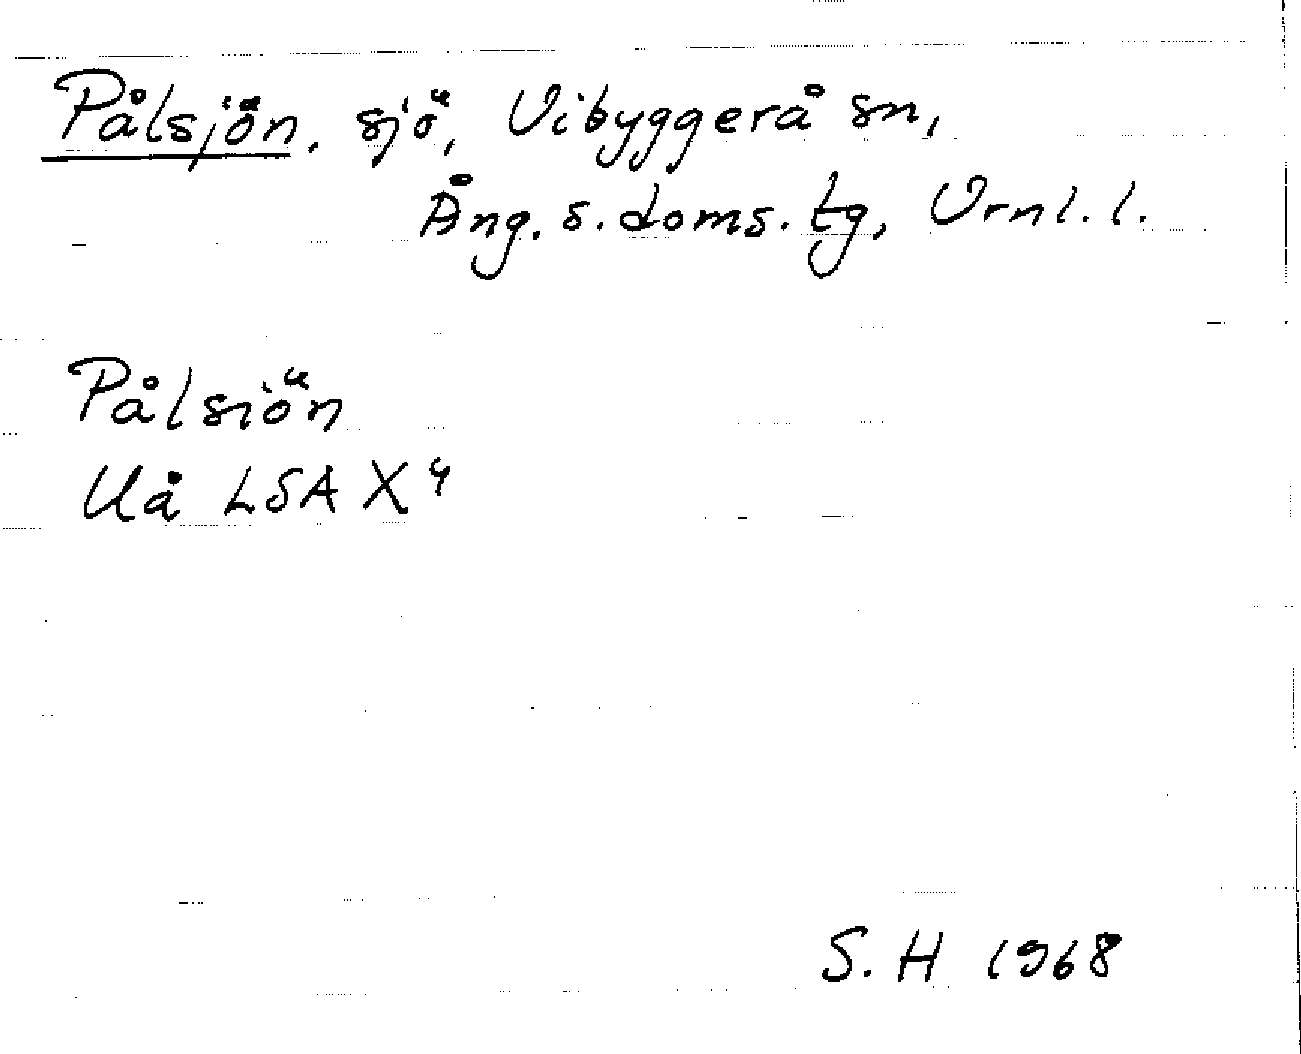 Pålsjön, sjö, Vibyggerå sn,
Ång. s. doms. tg, Vrnl. l.
Pålsiön
Uå LSA X 4
S. H 1968